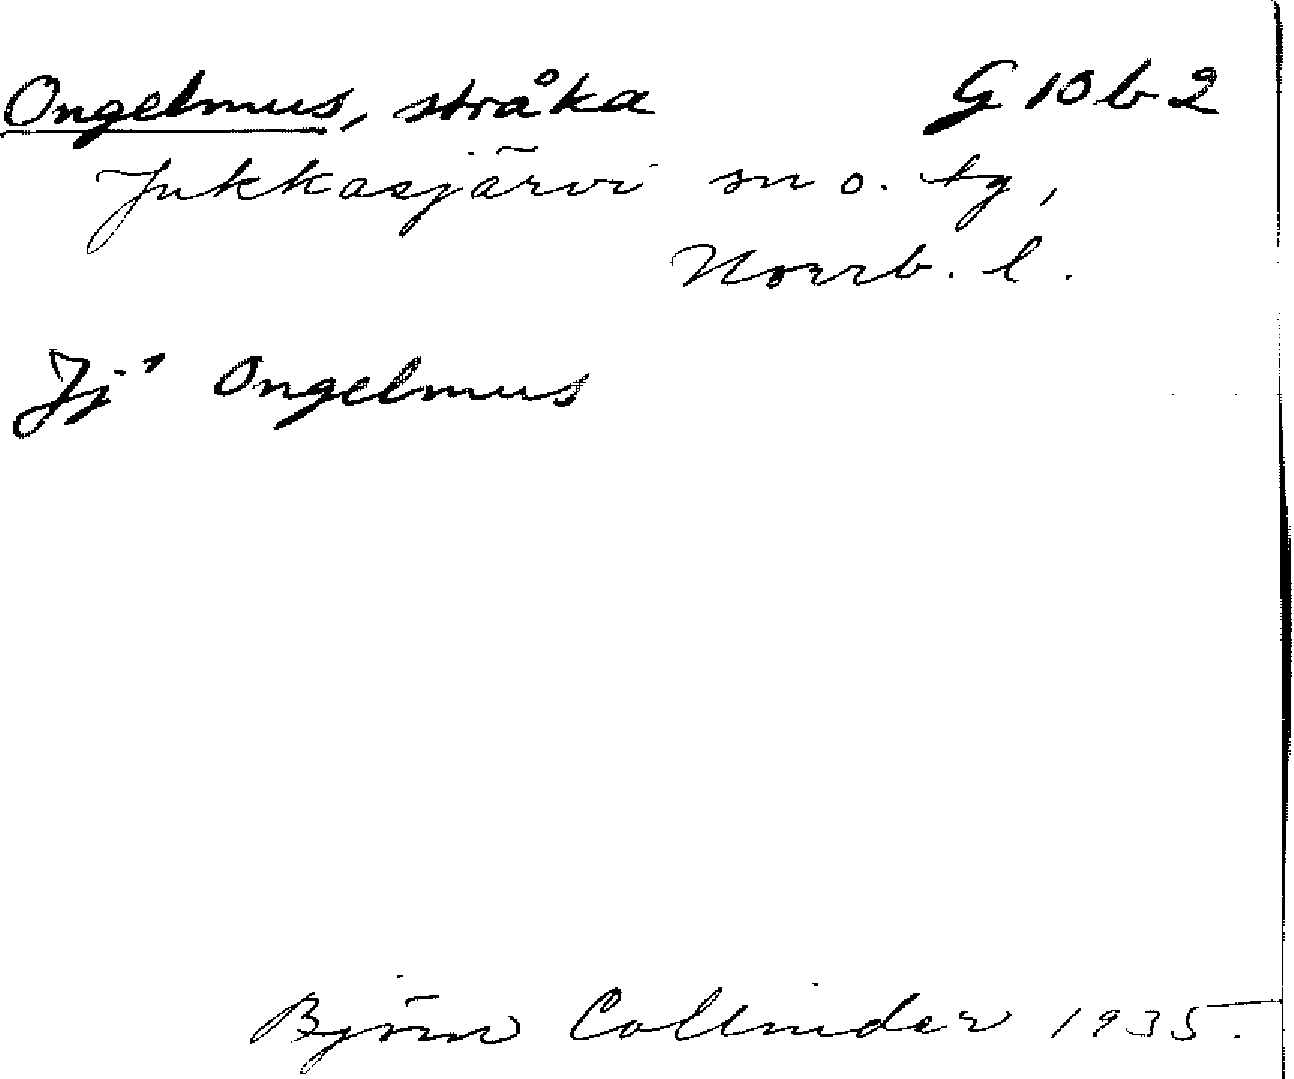 Ongelmus, stråka G 10 b 2
Jukkasjärvi sn o. tg,
Norrb. l.
Jj' Ongelmus
Björn Collinder 1935.